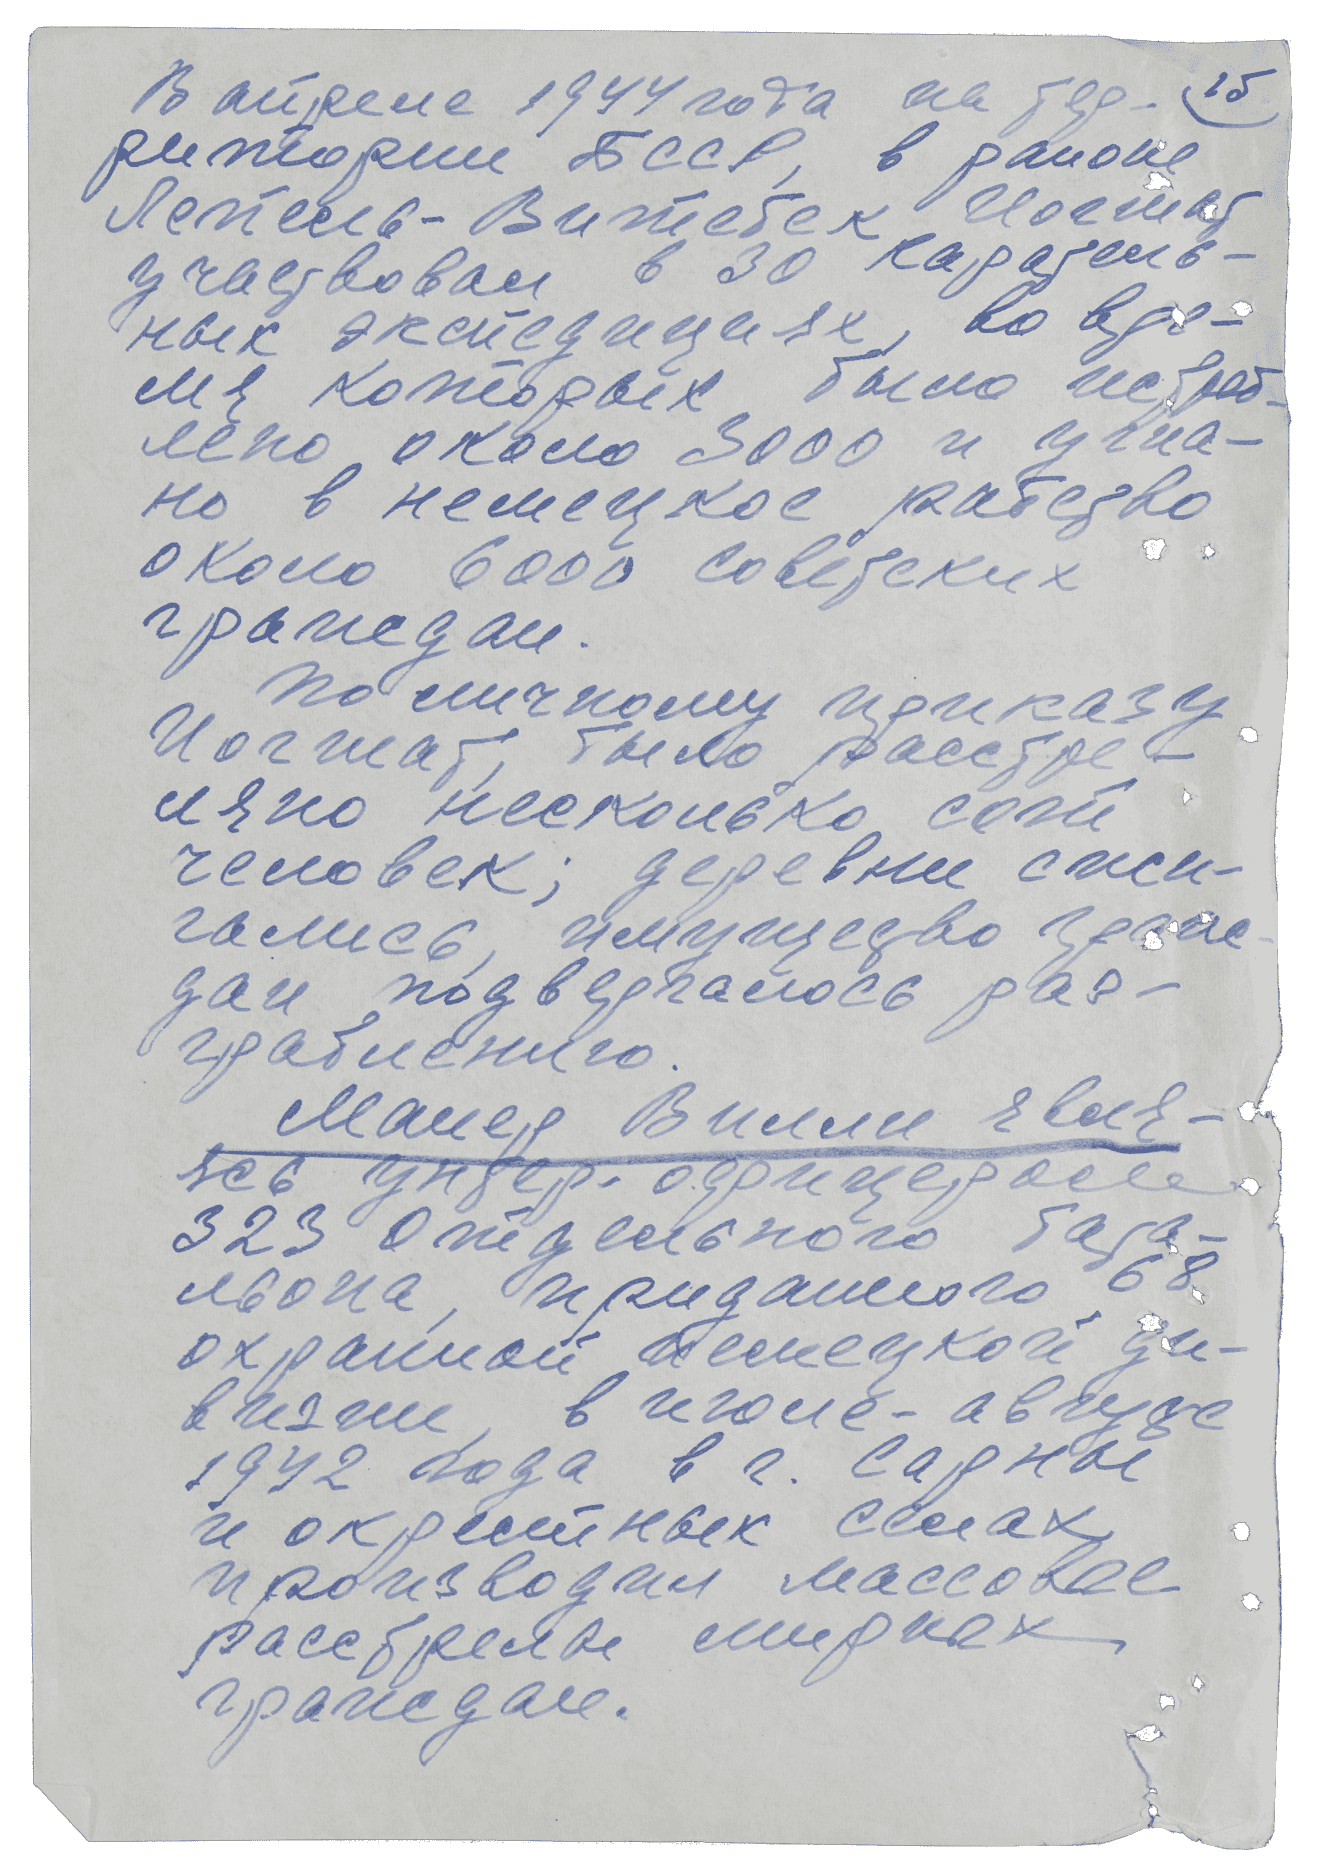 15
В апреле 1944 года на тер-
ритории БССР, в районе
Лепель-Витебск Йогшат
участвовал в 30 каратель-
ных экспедициях, во вре-
мя которых было истреб-
лено около 3000 и угна-
но в немецкое рабство
около 6000 советских
граждан.
По личному приказу
Йогшат, было расстре-
ляно несколько сот
человек; деревни сжи-
гались, имущество граж-
дан подвергалось раз-
граблению.
Маиер Вилли явля-
ясь унтер-офицером
323 отдельного бата-
льона, приданного 68
охранной немецкой ди-
визии, в июле-августе
1942 года в г. Сарны
и окрестных селах
производил массовые
расстрелы мирных
граждан.